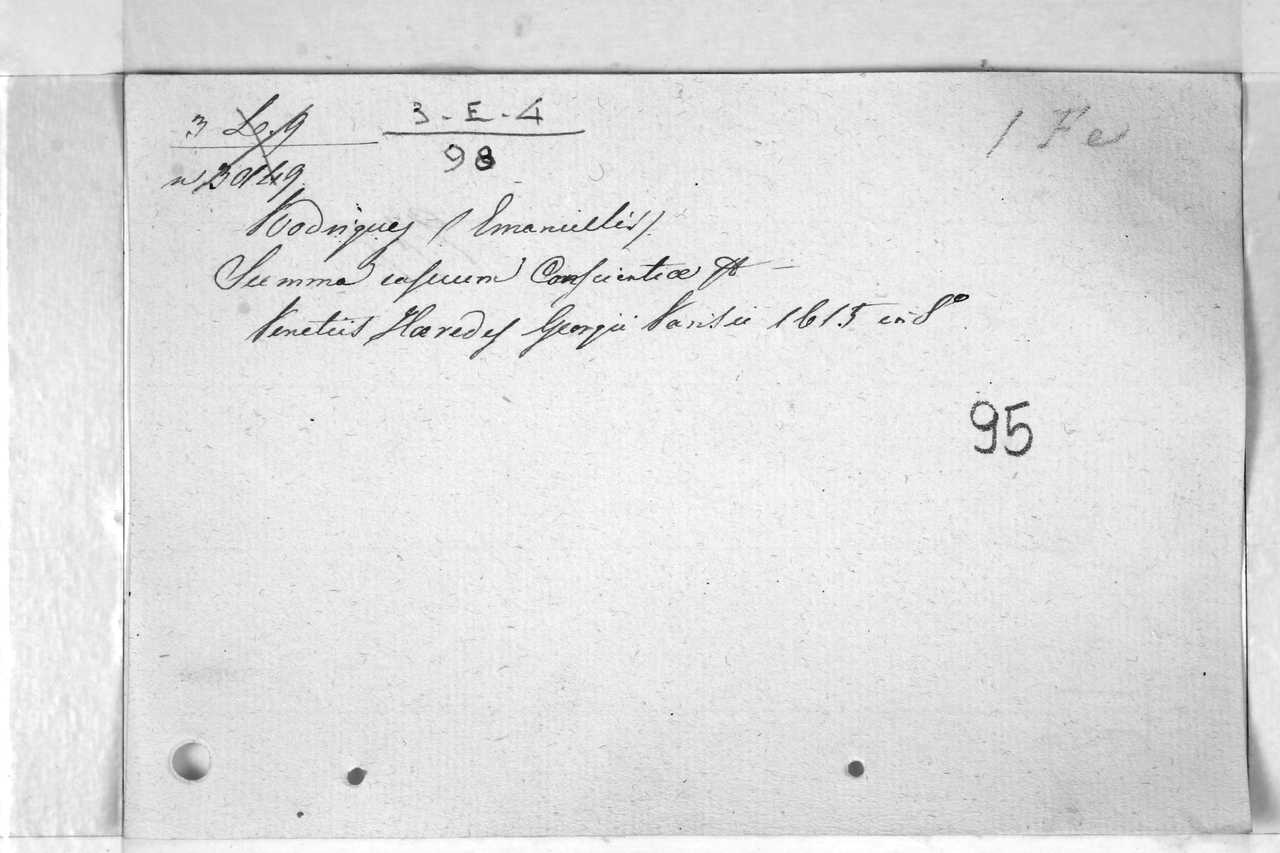 3 L. 9
3 - E - 4
98
1 Fe
Rodrigues (Emanuellis)
Summa casuum Conscientiæ
Venetiis Hæredes Georgii Varisii 1615 in 8º
95